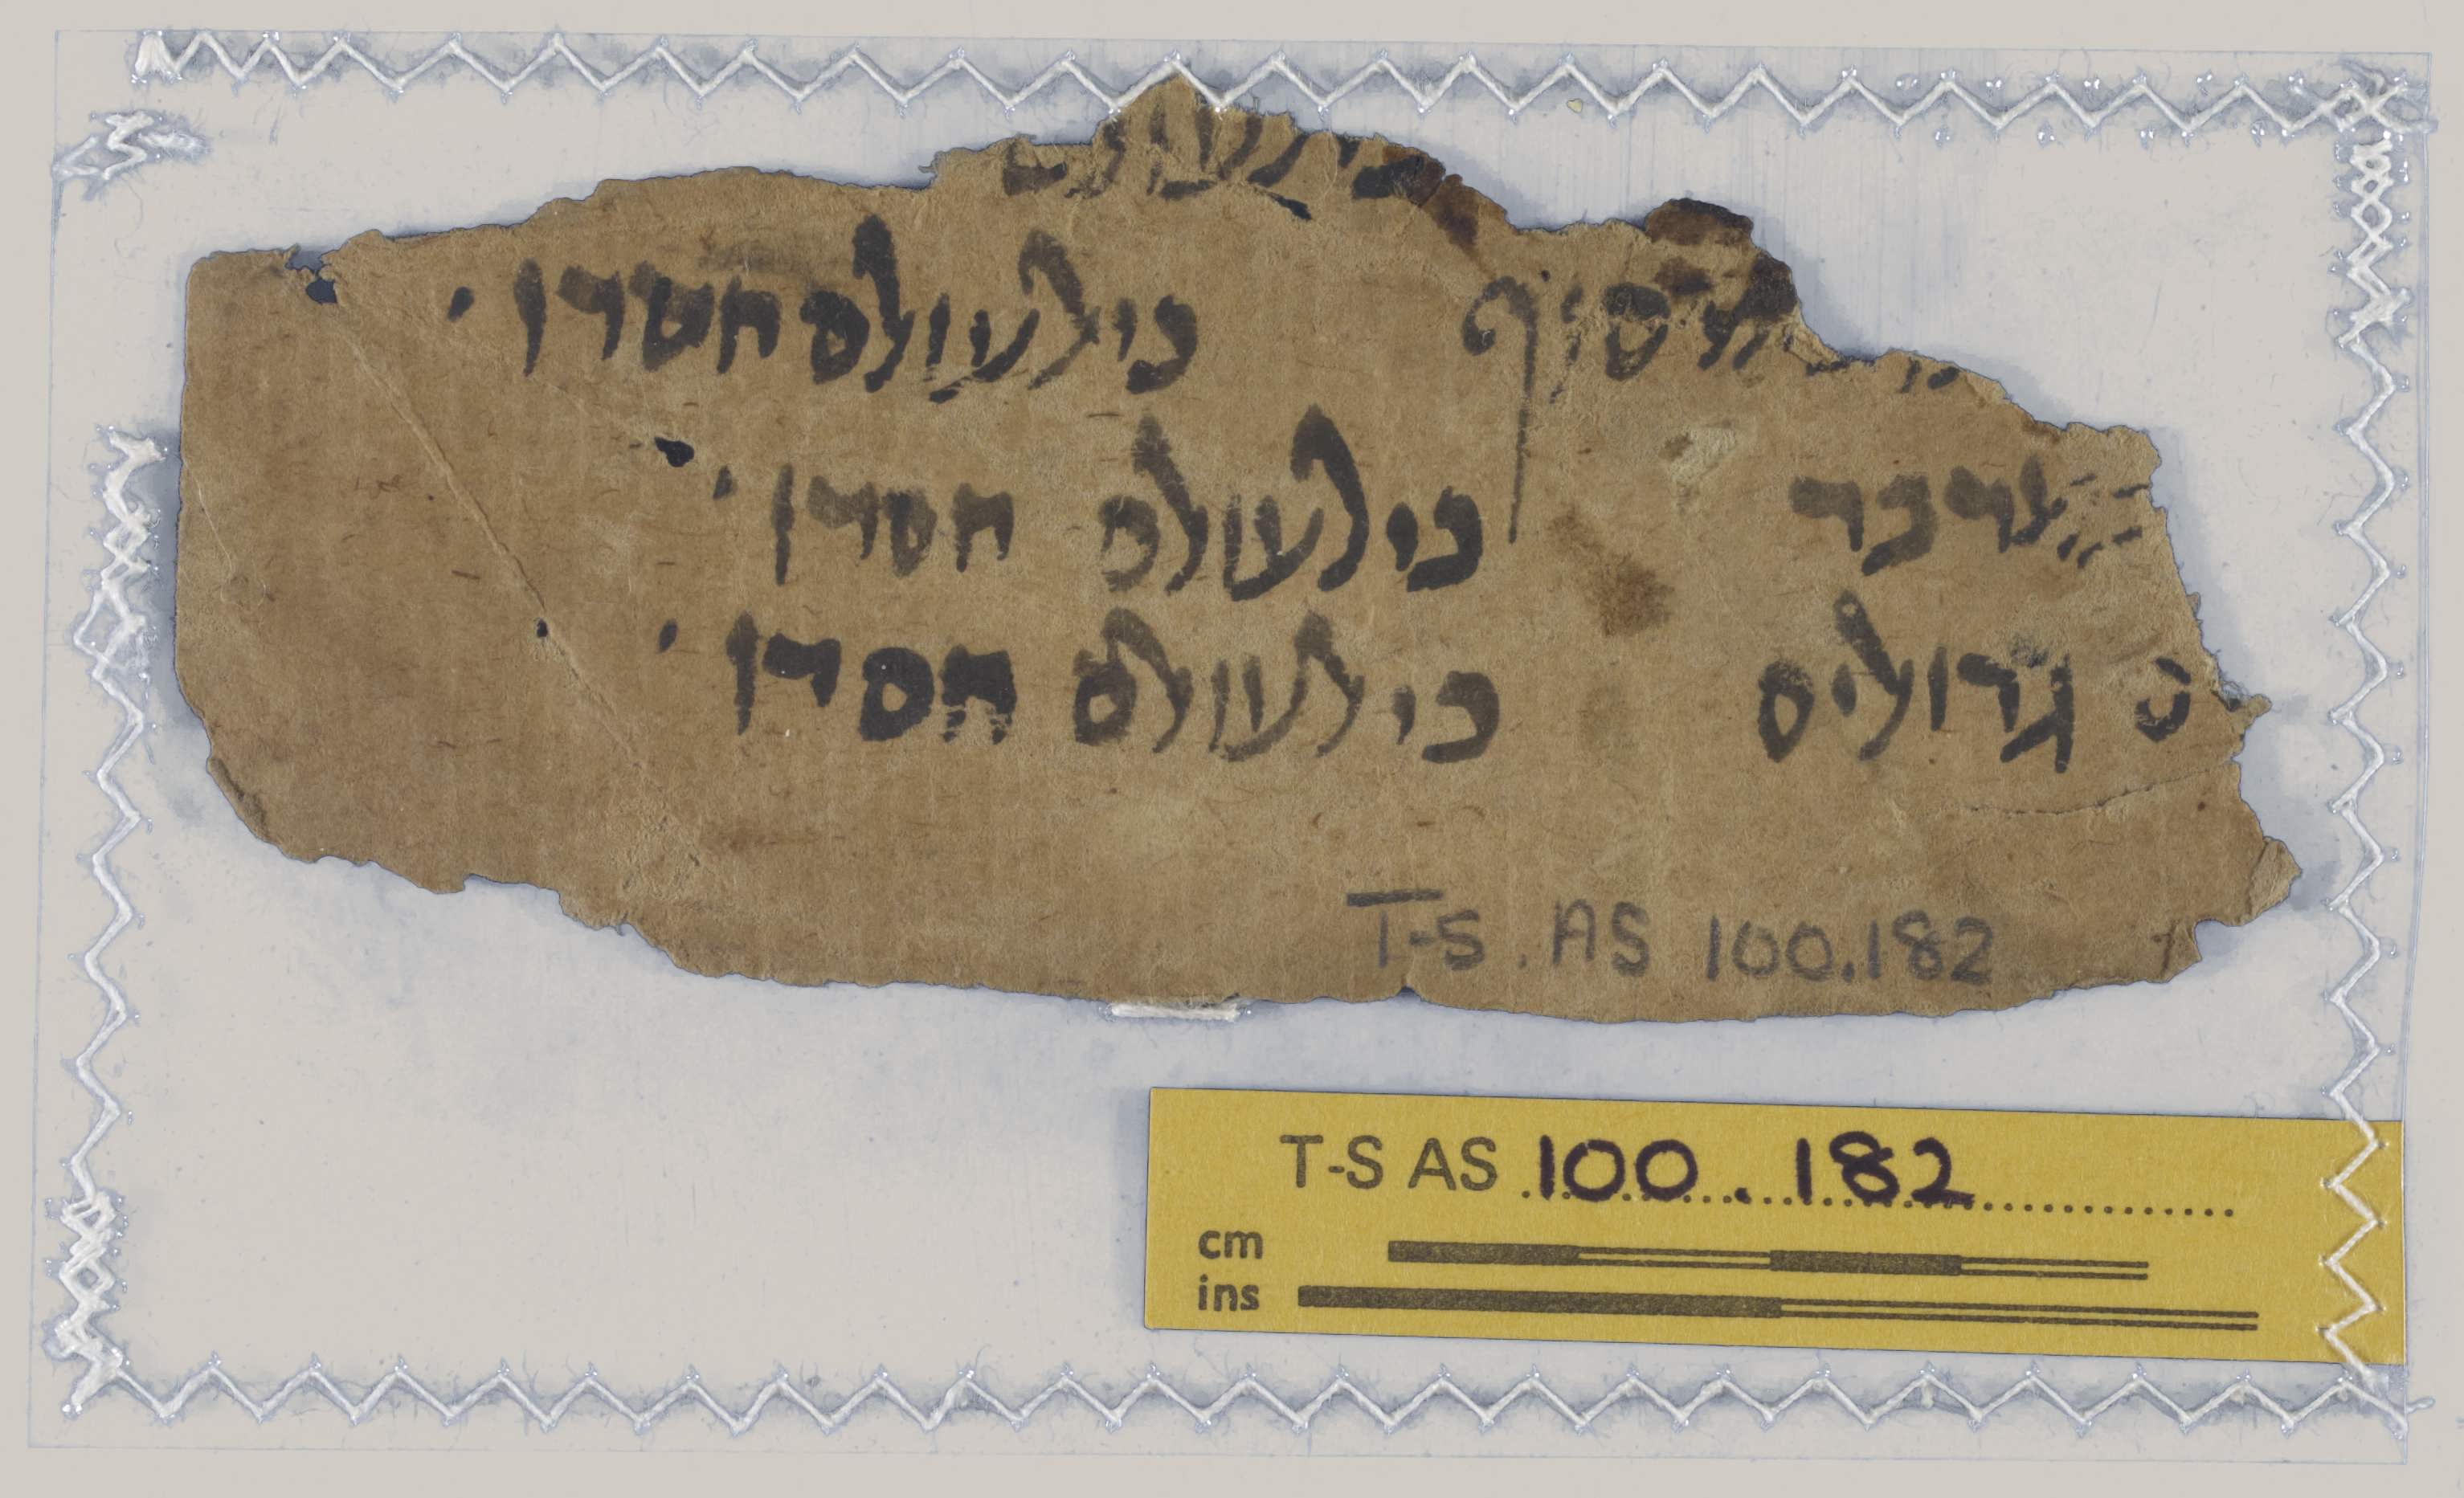 כי לעולם
סוף כי לעולם חסדו
במדבר כי לעולם חסדו
ם גדולים כי לעולם חסדו
T-S. AS 100.182
T-S AS 100.182
cm
ins